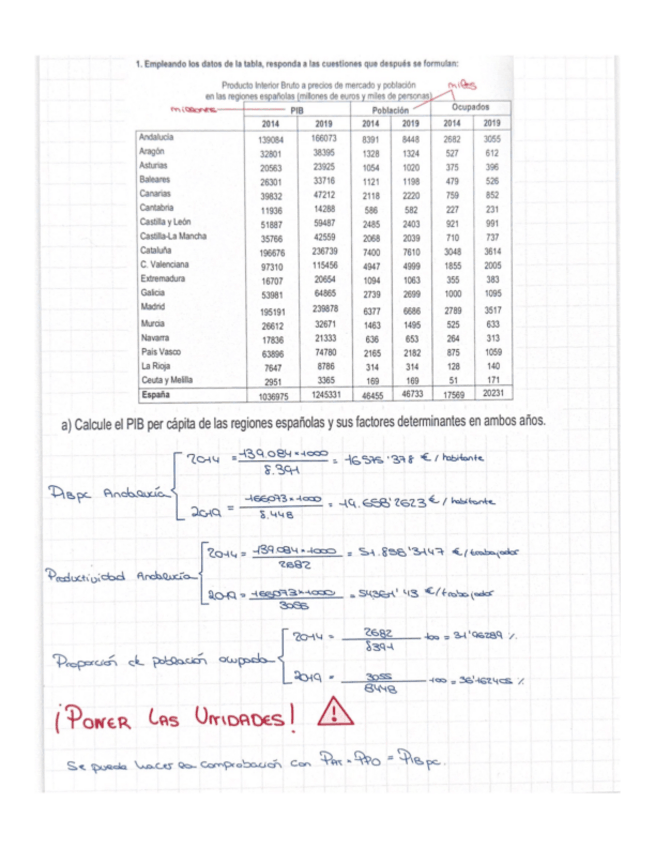 1. Empleando los datos de la tabla, responda a las cuestiones que después se formulan:
Producto Interior Bruto a precios de mercado y población
en las regiones españolas (millones de euros y miles de personas)
miles
millones
PIB Población Ocupados
2014 2019 2014 2019 2014 2019
Andalucía 139084 166073 8391 8448 2682 3055
Aragón 32801 38395 1328 1324 527 612
Asturias 20563 23925 1054 1020 375 396
Baleares 26301 33716 1121 1198 479 526
Canarias 39832 47212 2118 2220 759 852
Cantabria 11936 14288 586 582 227 231
Castilla y León 51887 59487 2485 2403 921 991
Castilla-La Mancha 35766 42559 2068 2039 710 737
Cataluña 196676 236739 7400 7610 3048 3614
C. Valenciana 97310 115456 4947 4999 1855 2005
Extremadura 16707 20654 1094 1063 355 383
Galicia 53981 64865 2739 2699 1000 1095
Madrid 195191 239878 6377 6686 2789 3517
Murcia 26612 32671 1463 1495 525 633
Navarra 17836 21333 636 653 264 313
País Vasco 63896 74780 2165 2182 875 1059
La Rioja 7647 8786 314 314 128 140
Ceuta y Melilla 2951 3365 169 169 51 171
España 1036975 1245331 46455 46733 17569 20231
a) Calcule el PIB per cápita de las regiones españolas y sus factores determinantes en ambos años.
2014 = 139.084 × 1000 / 8.391 = 16575'378 € / habitante
PIBpc Andalucía
2019 = 166073 × 1000 / 8.448 = 19.658'2623 € / habitante
2014 = 139.084 × 1000 / 2682 = 51.858'3147 € / trabajador
Productividad Andalucía
2019 = 166073 × 1000 / 3055 = 54361'43 € / trabajador
2014 = 2682 / 8391 · 100 = 31'96289 %
Proporción de población ocupada
2019 = 3055 / 8448 · 100 = 36'162405 %
¡PONER LAS UNIDADES!
Se puede hacer la comprobación con = PIBpc.